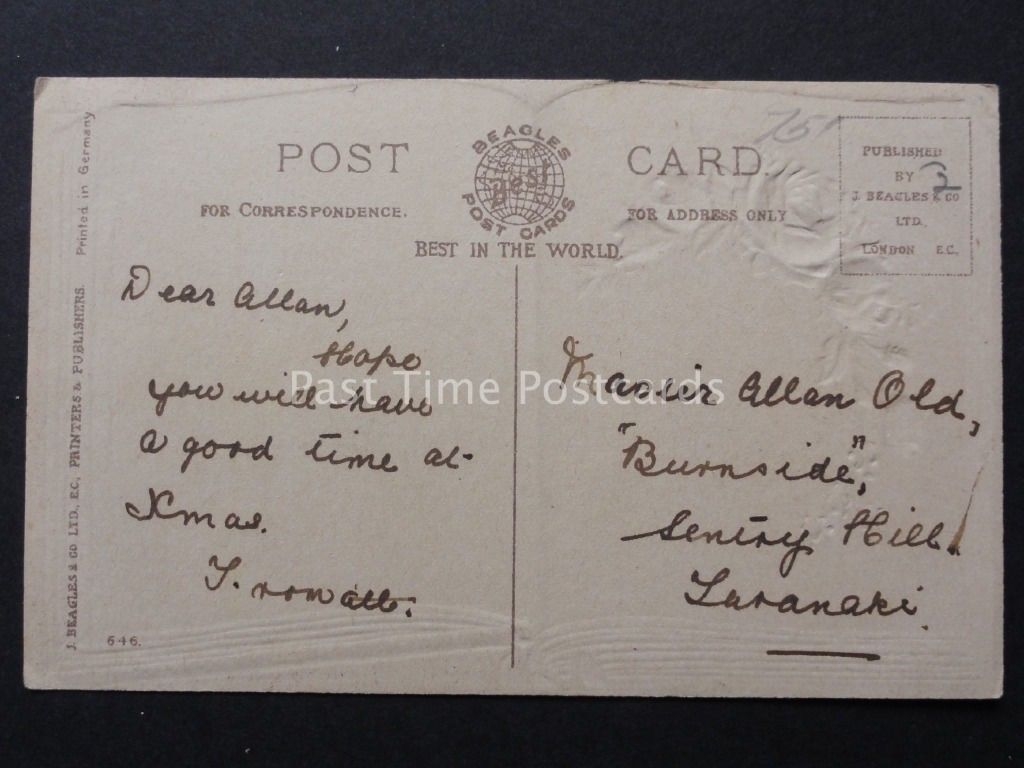 POST CARD.
BEAGLES
Best
POST CARDS
FOR CORRESPONDENCE.
FOR ADDRESS ONLY
BEST IN THE WORLD.
PUBLISHED
BY
J. BEAGLES & CO
LTD.
LONDON E.C.
2
Printed in Germany
J. BEAGLES & CO LTD., E.C., PRINTERS & PUBLISHERS.
646.
Dear Allan,
Hope
you will have
a good time at
Xmas.
From all.
Master Allan Old,
"Burnside",
Sentry Hill.
Taranaki.
Past Time Postcards